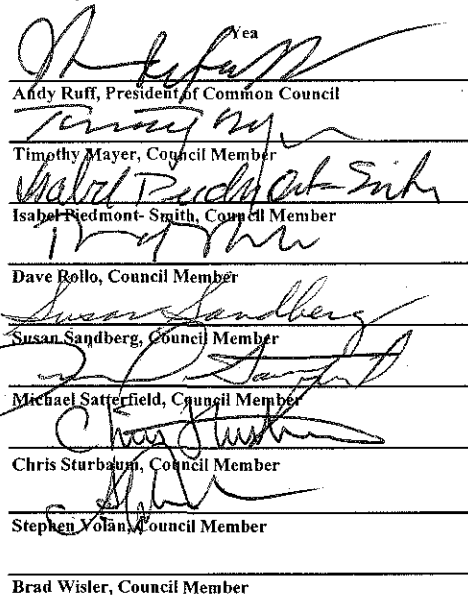 Yea
Andy Ruff, President of Common Council
Timothy Mayer, Council Member
Isabel Piedmont-Smith
Isabel Piedmont- Smith, Council Member
Dave Rollo, Council Member
Susan Sandberg
Susan Sandberg, Council Member
Michael Satterfield, Council Member
Chris Sturbaum, Council Member
Stephen Volan, Council Member
Brad Wisler, Council Member